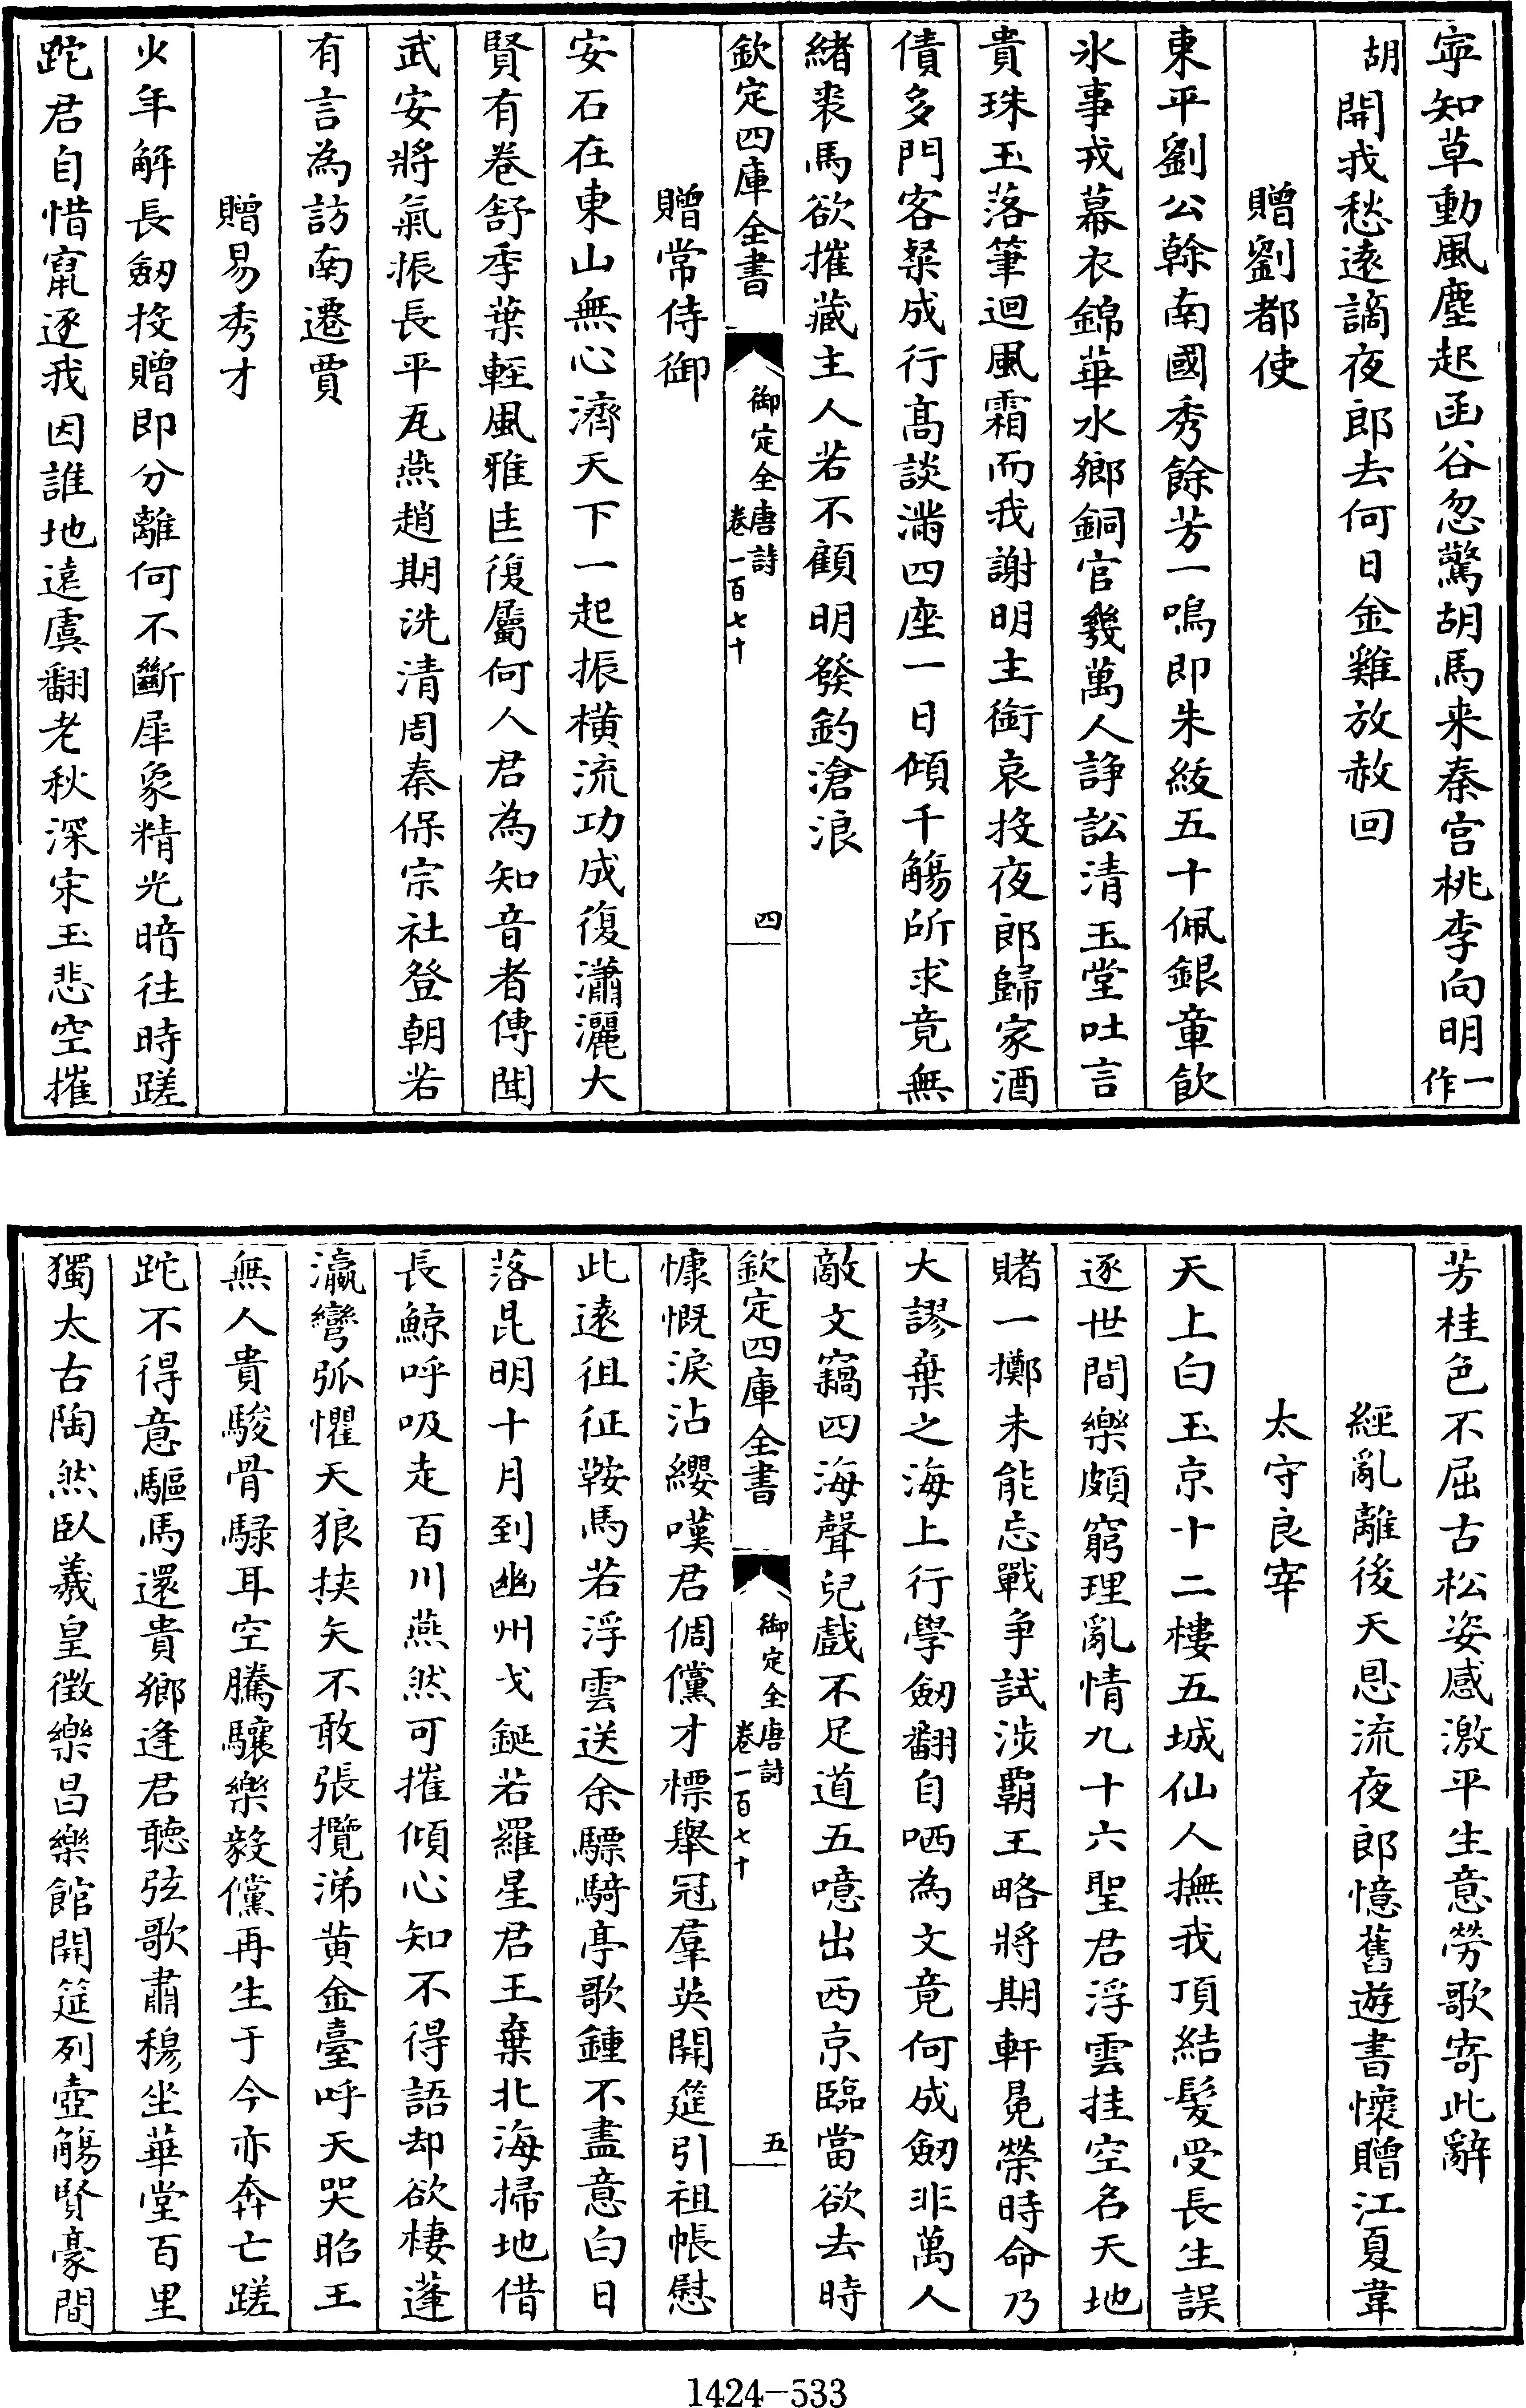 寧知草動風塵起函谷忽驚胡馬来秦宫桃李向明一作
胡開我愁遠謫夜郎去何日金雞放赦回
贈劉都使
東平劉公幹南國秀餘芳一鳴即朱紱五十佩銀章飲
氷事戎幕衣錦華水鄉銅官幾萬人諍訟清玉堂吐言
貴珠玉落筆迴風霜而我謝明主銜哀投夜郎歸家酒
債多門客粲成行髙談滿四座一日傾千觴所求竟無
緒裘馬欲摧藏主人若不顧明發釣滄浪
欽定四庫全書 御定全唐詩 卷一百七十 四
贈常侍御
安石在東山無心濟天下一起振横流功成復瀟灑大
賢有卷舒季葉輊風雅匡復屬何人君為知音者傳聞
武安將氣振長平瓦燕趙期洗清周秦保宗社登朝若
有言為訪南遷賈
贈易秀才
少年解長劒投贈即分離何不斷犀象精光暗往時蹉
跎君自惜竄逐我因誰地逺虞翻老秋深宋玉悲空摧
芳桂色不屈古松姿感激平生意勞歌寄此辭
經亂離後天恩流夜郎憶舊遊書懷贈江夏韋
太守良宰
天上白玉京十二樓五城仙人撫我頂結髮受長生誤
逐世間樂頗窮理亂情九十六聖君浮雲挂空名天地
賭一擲未能忘戰争試涉霸王略將期軒冕榮時命乃
大謬棄之海上行學劒翻自哂為文竟何成劒非萬人
敵文竊四海聲兒戲不足道五噫出西京臨當欲去時
欽定四庫全書 御定全唐詩 卷一百七十 五
慷慨淚沾纓嘆君倜儻才標舉冠羣英開筵引祖帳慰
此逺徂征鞍馬若浮雲送余驃騎亭歌鍾不盡意白日
落昆明十月到幽州戈鋋若羅星君王棄北海掃地借
長鯨呼吸走百川燕然可摧傾心知不得語却欲棲蓬
瀛彎弧懼天狼挾矢不敢張攬涕黄金臺呼天哭昭王
無人貴駿骨騄耳空騰驤樂毅儻再生于今亦奔亡蹉
跎不得意驅馬還貴鄉逢君聽弦歌肅穆坐華堂百里
獨太古陶然臥羲皇徵樂昌樂館開筵列壺觴賢豪間
1424-533